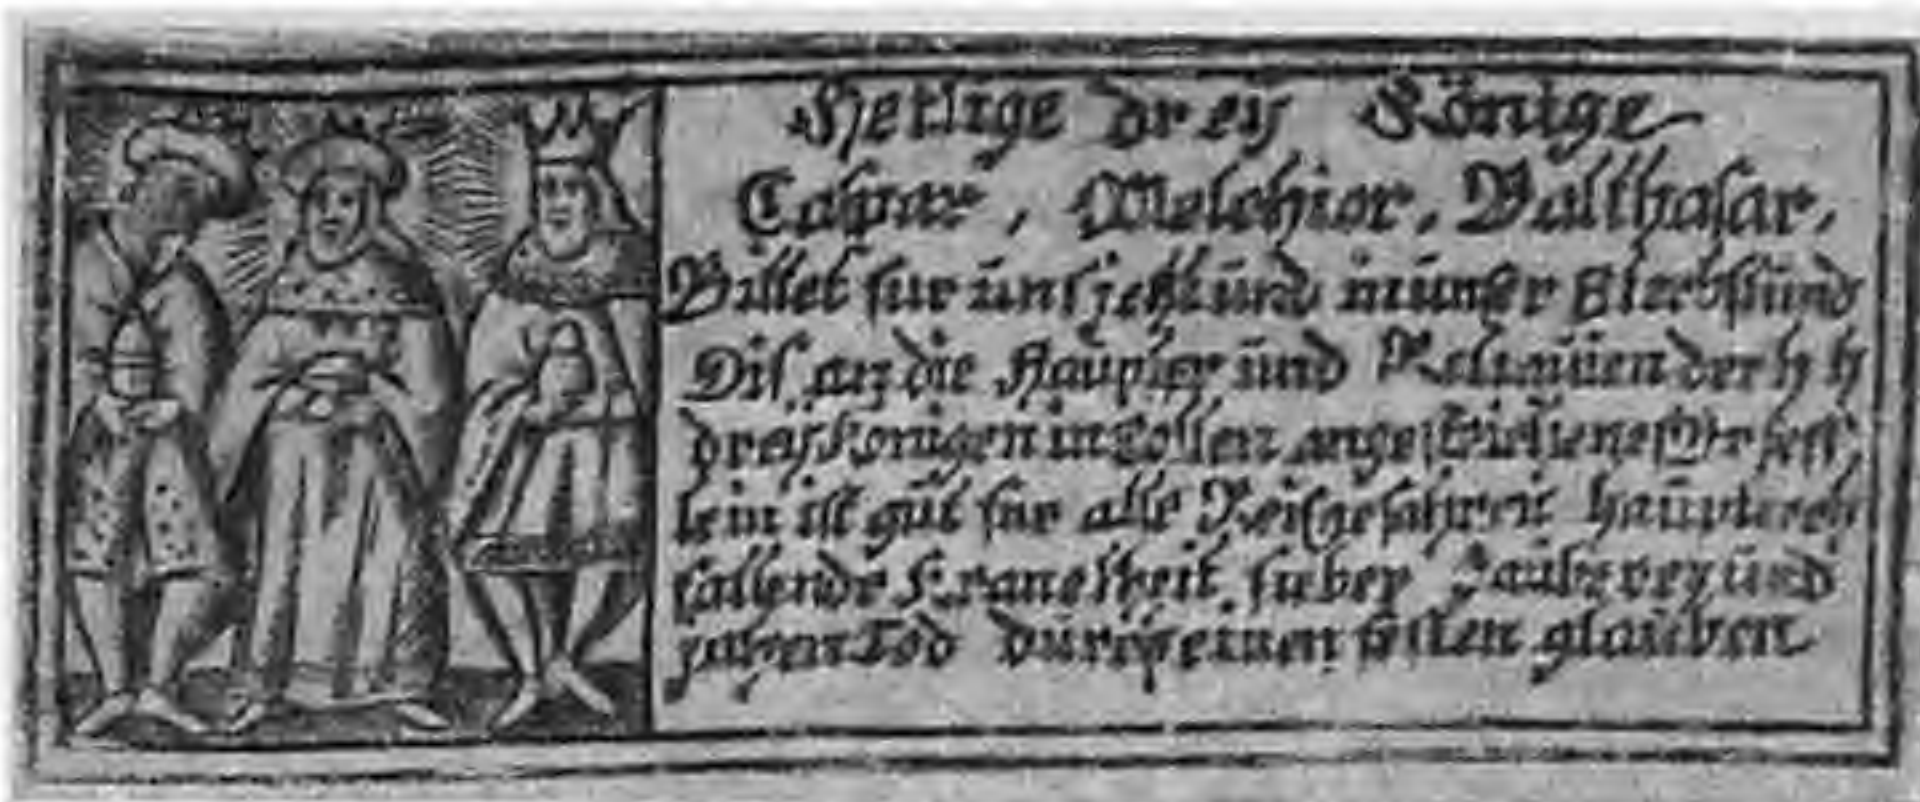 Heilige drey Könige
Caspar, Melchior, Balthasar,
Bittet für uns jetzt und in unser Sterbstund
Dis an die Haupter und Reliquien der h h
drey Königen in Cöllen angestrichene
lein ist gut für alle Reisgefahren haupt
fallende Kranckheit fieber Zauberey und
jähen Tod durch einen festen glauben